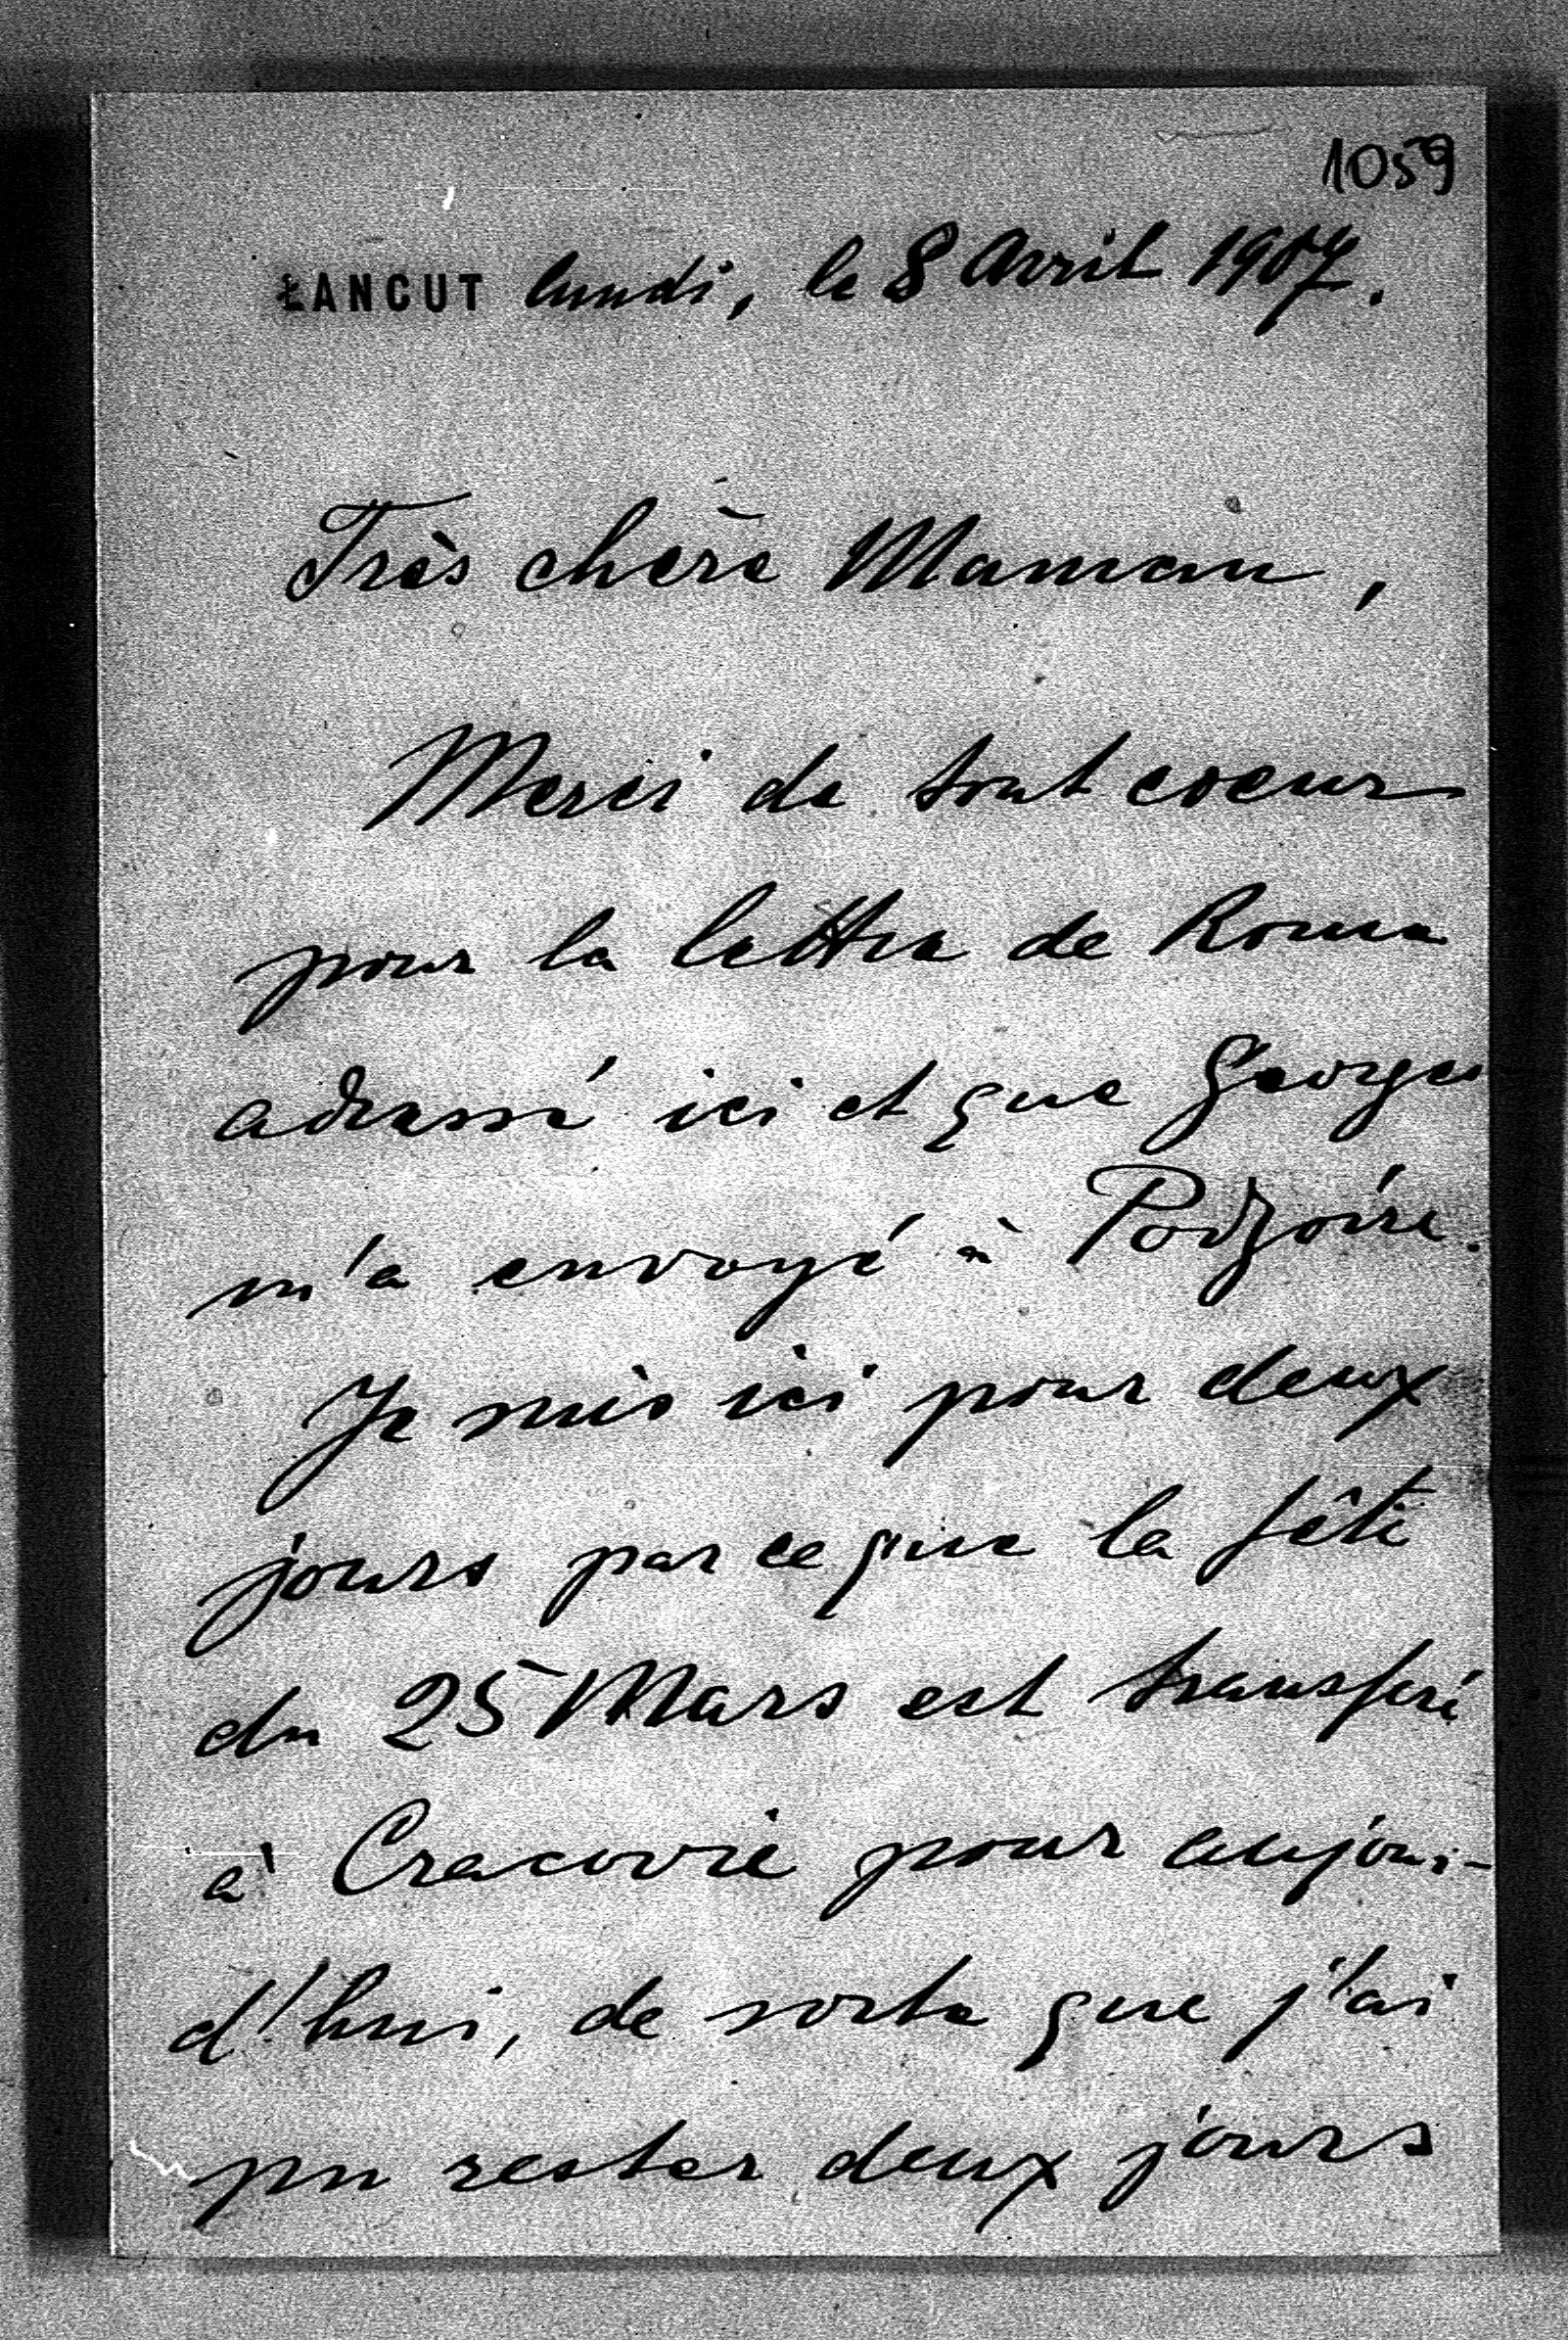 1059
ŁANCUT lundi, le 8 Avril 1907.
Très chère Maman,
Merci de tout coeur
pour la lettre de Rome
adressé ici et que Georges
m'a envoyé à
Je suis ici pour deux
jours par ce que la fête
du 25 Mars est transferé
à Cracovie pour aujour-
d'hui, de sorte que j'ai
pu rester deux jours